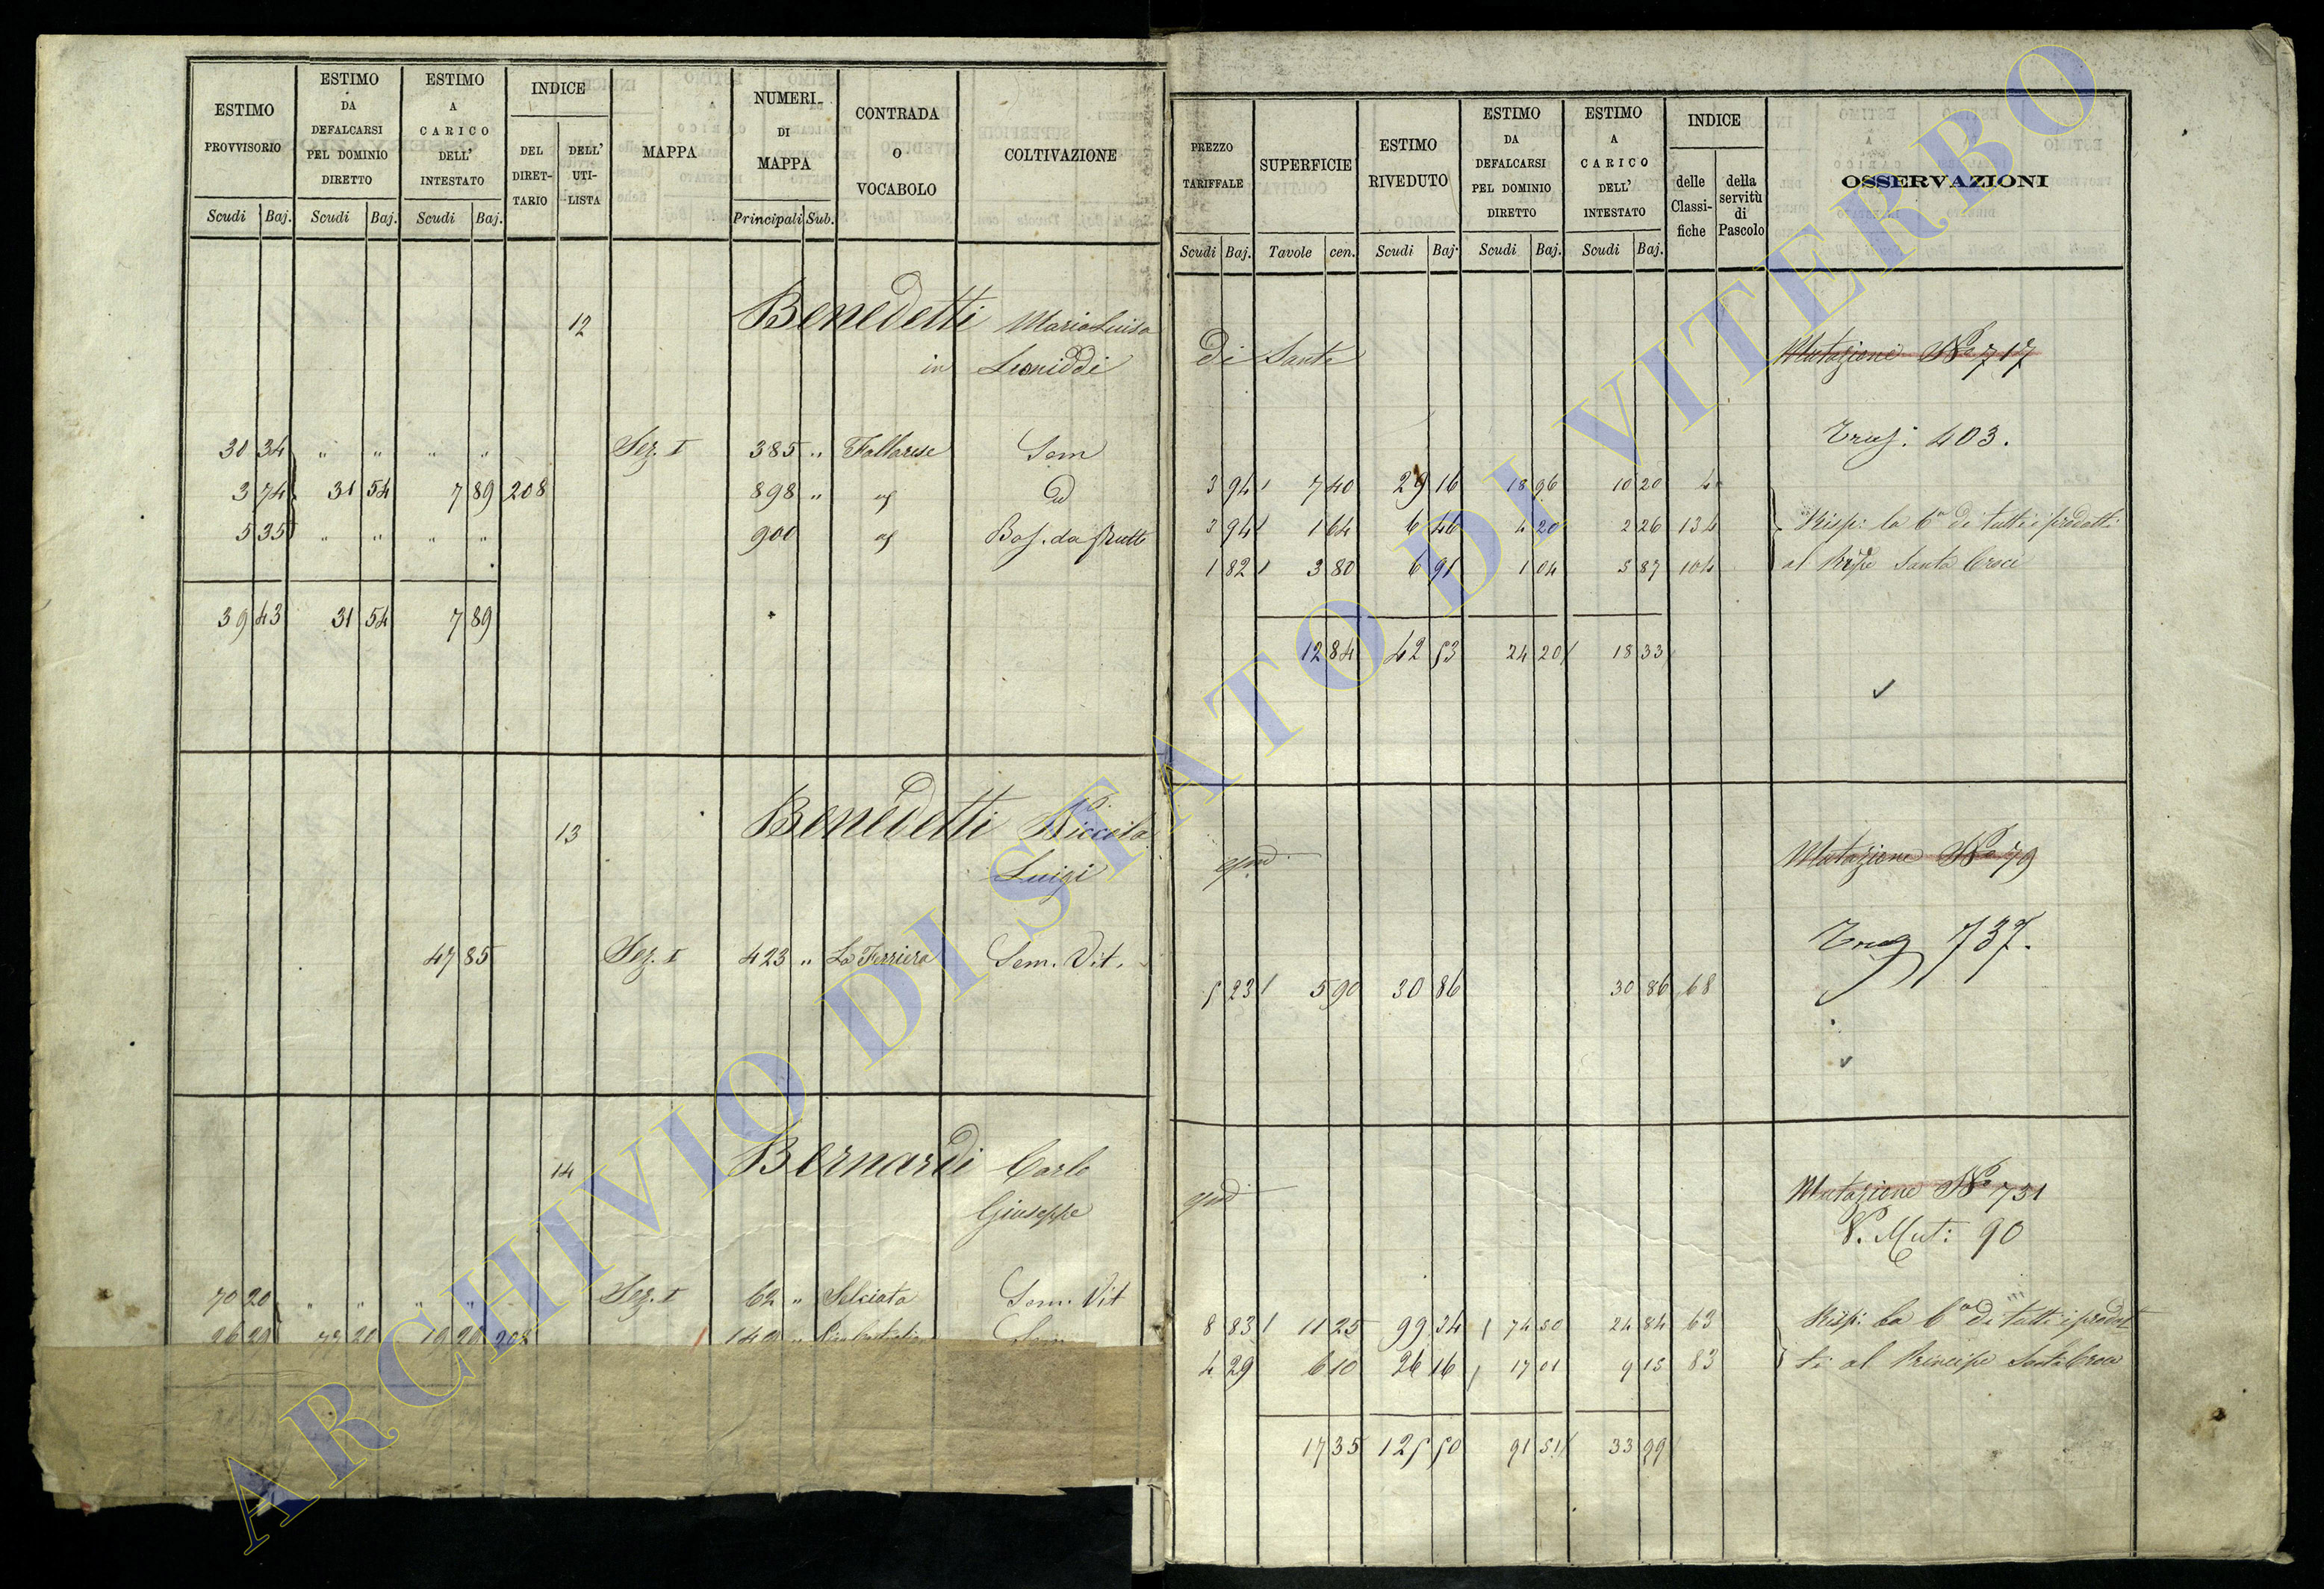 ESTIMO PROVVISORIO
ESTIMO DA DEFALCARSI PEL DOMINIO DIRETTO
ESTIMO A CARICO DELL' INTESTATO
INDICE
DEL DIRET-TARIO
DELL' UTI-LISTA
MAPPA
NUMERI DI MAPPA
CONTRADA O VOCABOLO
COLTIVAZIONE
Scudi Baj. Scudi Baj. Scudi Baj. Principali Sub.
12 Benedetti Maria Luisa
in Leoniddi
30 34 " " " " Sez. I 385 " Fallarese Sem
3 74 31 54 7 89 208 898 " id
5 35 " " " " 900 Bos. da frutto
39 43 31 54 7 89
13 Benedetti Niccola
Luigi
47 85 Sez. I 423 " La Ferriera Sem. Vit.
14 Bernardi Carlo
Giuseppe
70 20 " " " " Sez. I 62 " Selciata Sem. Vit
26 29 77 20 19 29 208 1 140 " Sem
PREZZO TARIFFALE
SUPERFICIE
ESTIMO RIVEDUTO
ESTIMO DA DEFALCARSI PEL DOMINIO DIRETTO
ESTIMO A CARICO DELL' INTESTATO
INDICE
delle Classi-fiche
della servitù di Pascolo
OSSERVAZIONI
Scudi Baj. Tavole cen. Scudi Baj. Scudi Baj. Scudi Baj.
di Sante
Mutazione No 717
Trasj: 403.
3 94 7 40 29 16 18 96 10 20 40
3 94 1 64 6 46 4 20 2 26 134 Risp: la 6a di tutti i prodotti
1 82 3 80 6 91 1 04 5 87 104 al Prpe Santa Croce
12 84 42 53 24 20 18 33
qm
Mutazione No 79
737.
5 23 5 90 30 86 30 86 68
qm
Mutazione No 731
V. Mut: 90
8 83 11 25 99 34 74 50 24 84 63 Risp: la 6a di tutti i prodot
4 29 6 10 26 16 17 01 9 15 83 ti al Principe Santa Croce
17 35 125 50 91 51 33 99
ARCHIVIO DI STATO DI VITERBO